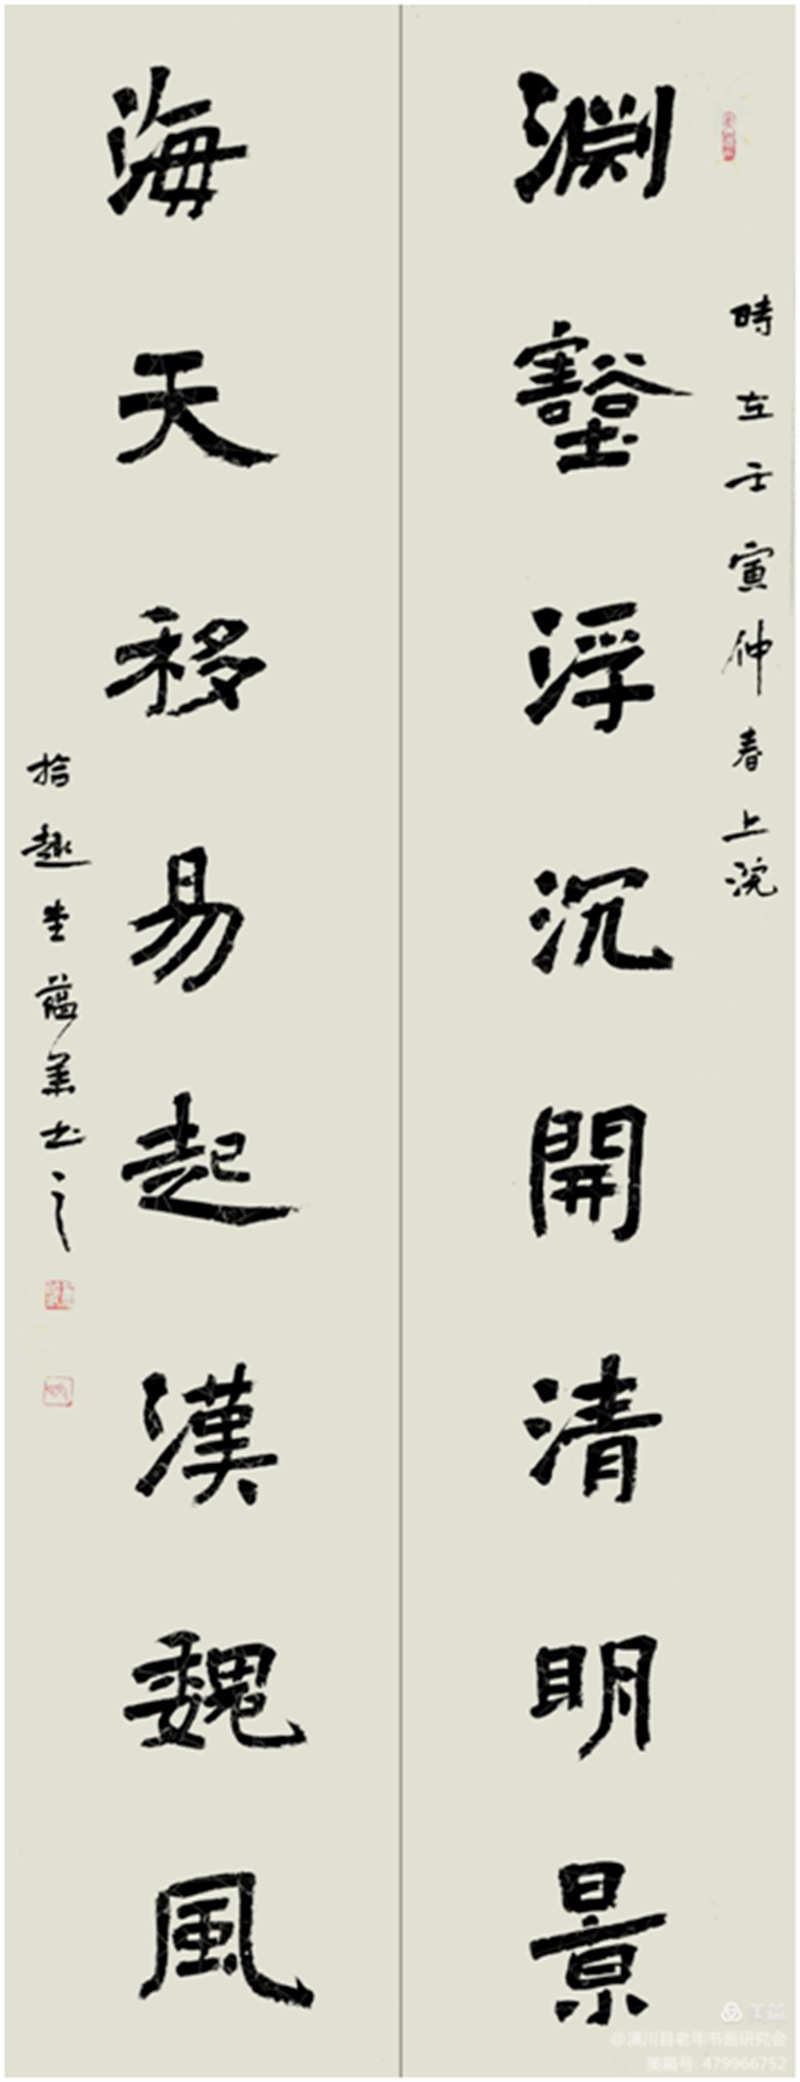 時在壬寅仲春上浣
淵壑浮沉開清明景
海天移易起漢魏風
拾趣堂蘊美书之
美篇
@潢川县老年书画研究会
美篇号: 479966752